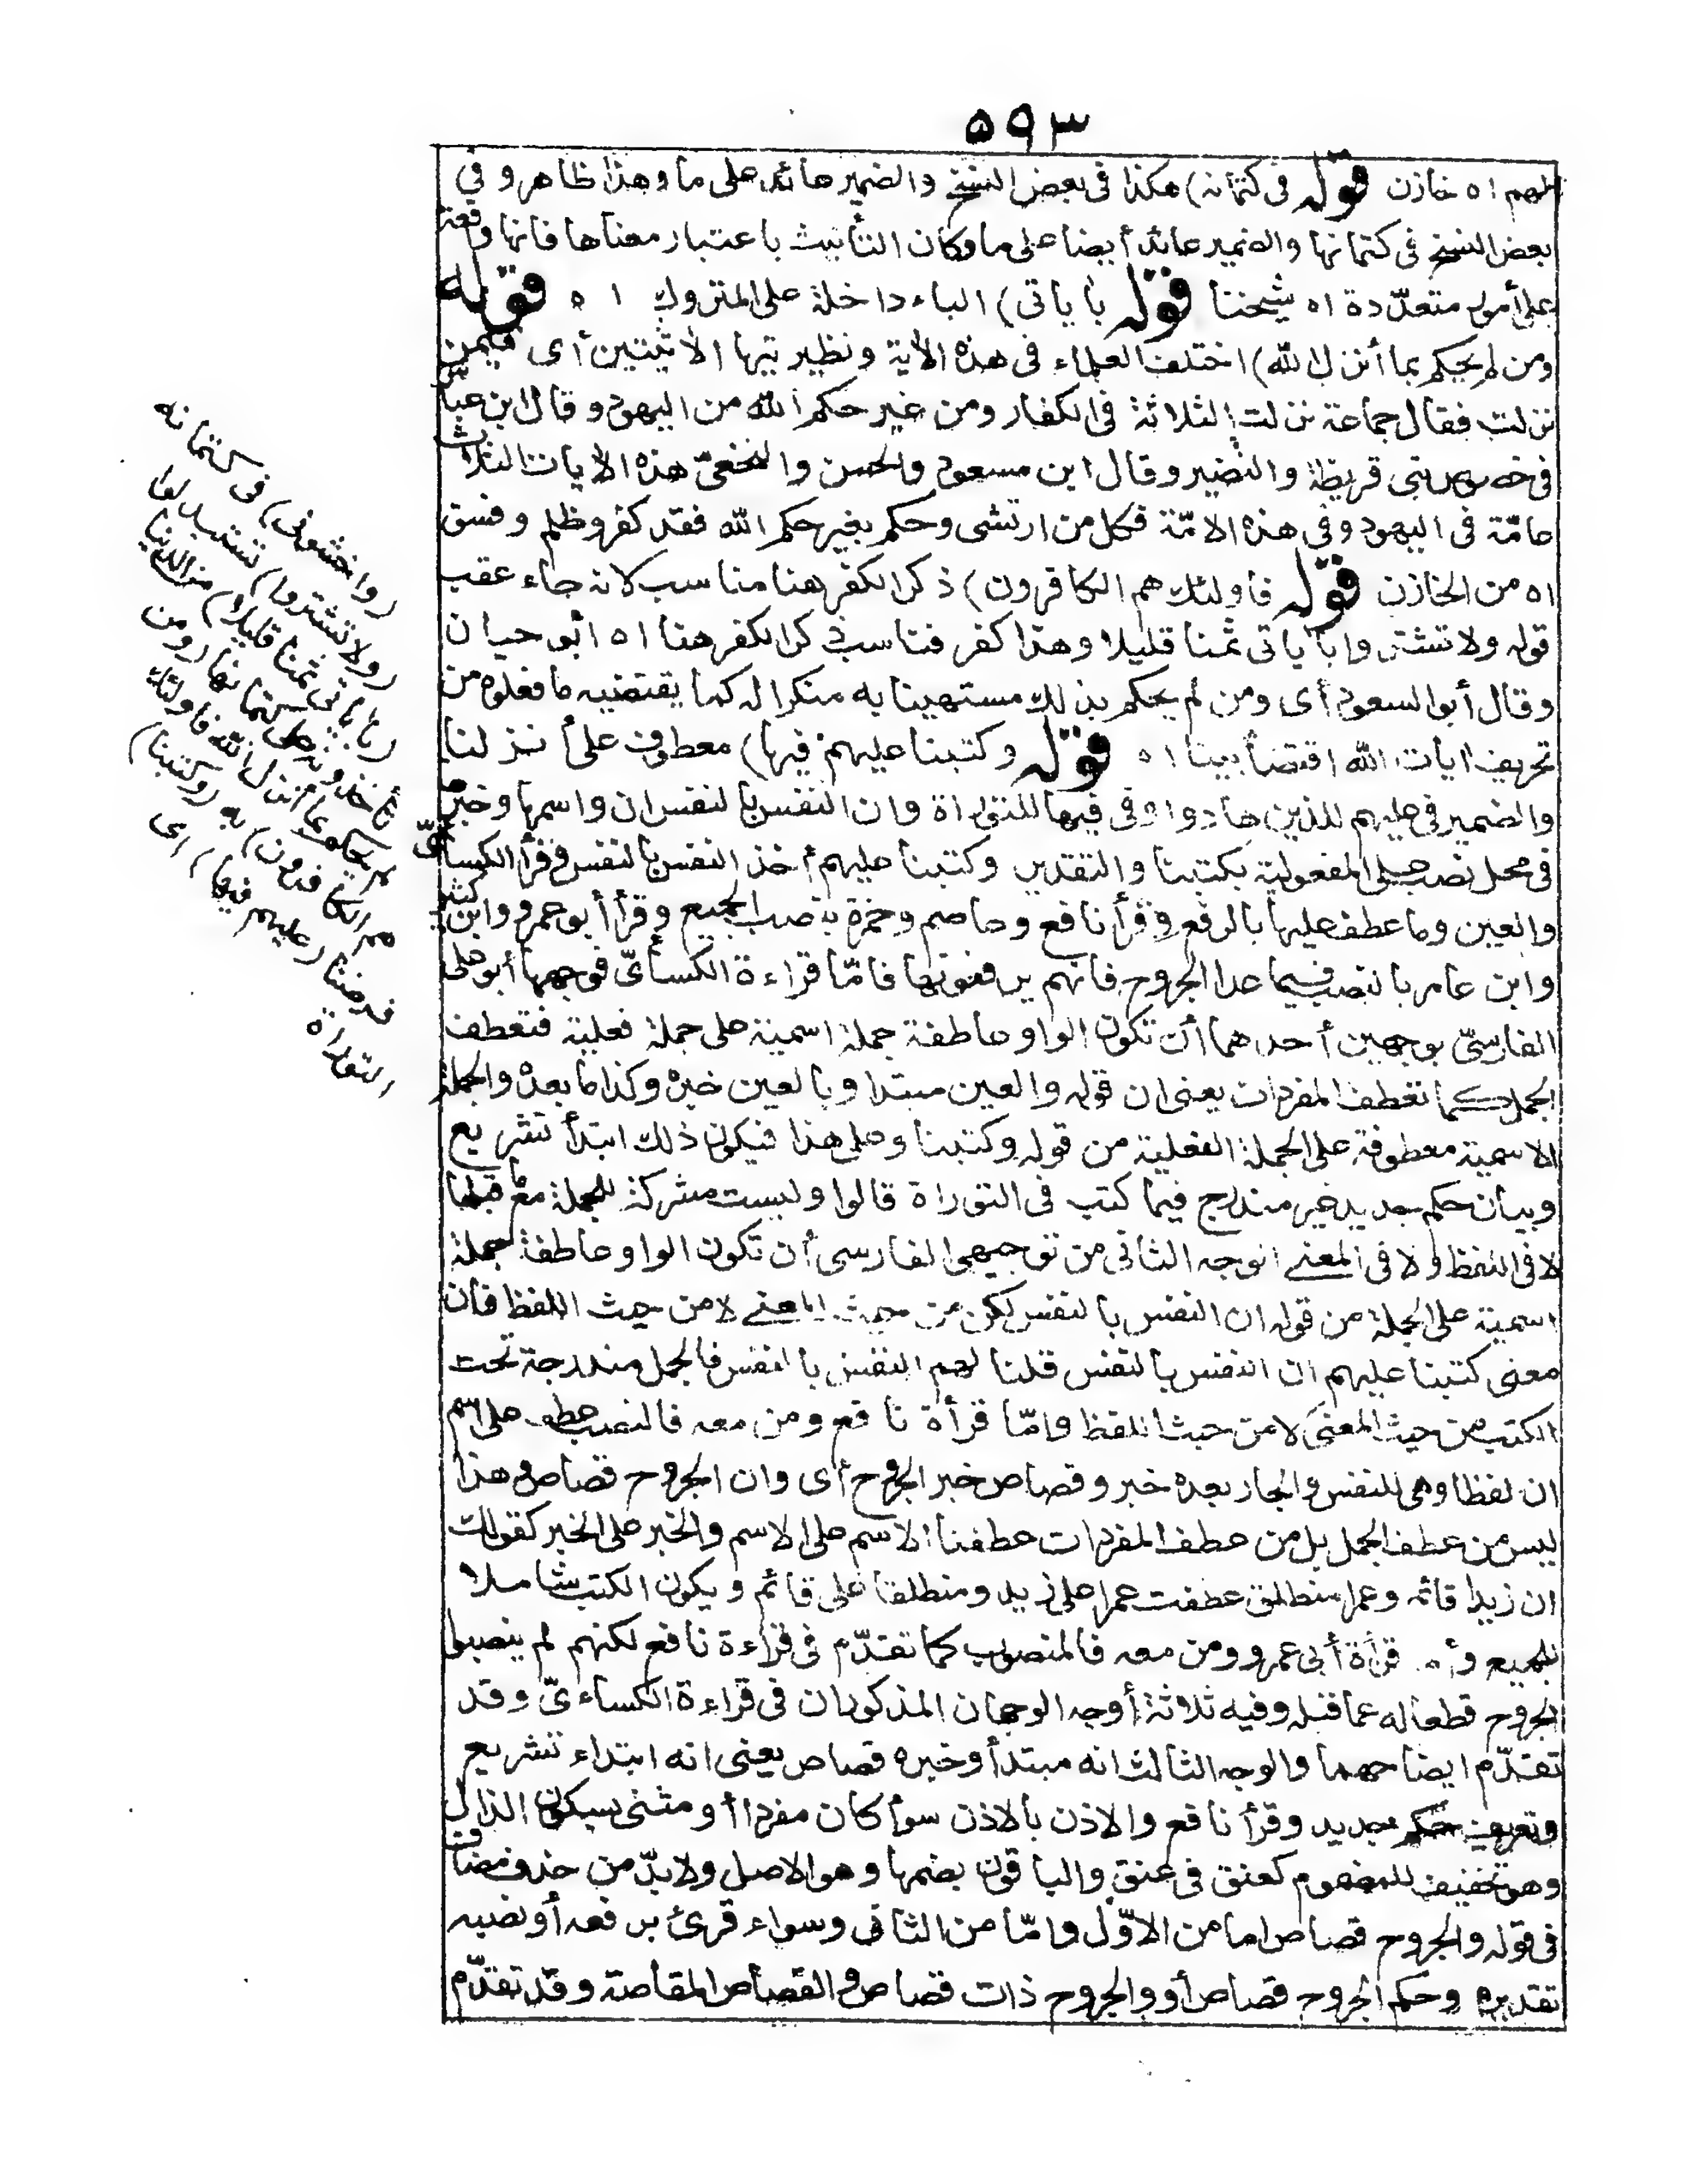 ٥٩٣
لهم اه خازن قوله فى كتمانه) هكذا فى بعض النسخ والضمير عائد على ما وهذا ظاهر و في
بعض النسخ فى كتمانها والضمير عائد أيضا على ما وكان التأنيث باعتبار معناها فانها واقعة
على أمور متعدّدة اه شيخنا قوله باياتى) الباء داخلة على المتروك اه قوله
ومن لم يحكم بما أنزل الله) اختلف العلماء فى هذه الاية ونظيرتيها الاتيتين أى فيمن
نزلت فقال جماعة نزلت الثلاثة فى الكفار ومن غير حكم الله من اليهود وقال ابن عباس
فى خصوص بنى قريظة والنضير وقال ابن مسعود والحسن والنخعىّ هذه الايات الثلاث
عامّة فى اليهود وفي هذه الامّة فكل من ارتشى وحكم بغير حكم الله فقد كفر وظلم وفسق
اه من الخازن قوله فاولئك هم الكافرون) ذكر الكفر هنا مناسب لانه جاء عقب
قوله ولا تشتروا باياتى ثمنا قليلا وهذا كفر فناسب ذكر الكفر هنا اه أبو حيان
وقال أبو السعود أى ومن لم يحكم بذلك مستهينا به منكرا له كما يقتضيه ما فعلوه من
تحريف ايات الله اقتضأ بينا اه قوله وكتبنا عليهم فيها) معطوف على أنزلنا
والضمير فى عليهم للذين هادوا وفى فيها للتوراة وان النفس بالنفس ان واسمها وخبرها
فى محل نصب على المفعولية بكتبنا والتقدير وكتبنا عليهم أخذ النفس بالنفس وقرأ الكسائىّ
والعين وما عطف عليها بالرفع وقرأ نافع وعاصم وحمزة بنصب الجميع وقرأ أبو عمرو وابن كثير
وابن عامر بالنصب فيما عدا الجروح فانهم يرفعونها فامّا قراءة الكسأىّ فوجهها أبو على
الفارسىّ بوجهين أحدهما أن تكون الواو عاطفة جملة اسمية على جملة فعلية فتعطف
الجمل كما تعطف المفردات يعنى ان قوله والعين مبتدا وبالعين خبره وكذا ما بعده والجملة
الاسمية معطوفة على الجملة الفعلية من قوله وكتبنا وعلى هذا فيكون ذلك ابتدأ تشريع
وبيان حكم جديد غير مندرج فيما كتب فى التوراة قالوا وليست مشركة للجملة مع ما قبلها
لا فى اللفظ ولا فى المعنى الوجه الثانى من توجيهى الفارسى أن تكون الواو عاطفة جملة
اسمية على الجملة من قوله ان النفس بالنفس لكن من حيث المعنى لا من حيث اللفظ فان
معنى كتبنا عليهم ان النفس بالنفس قلنا لهم النفس بالنفس فالجمل مندرجة تحت
الكتب من حيث المعنى لا من حيث اللفظ وامّا قرأة نافع ومن معه فالنصب عطف على اسم
ان لفظا وهى النفس والجار بعده خبر وقصاص خبر الجروح أى وان الجروح قصاص وهذا
ليس من عطف الجمل بل من عطف المفردات عطفنا الاسم على الاسم والخبر على الخبر كقولك
ان زيدا قائم وعمرا منطلق عطفت عمرا على زيد ومنطلقا على قائم ويكون الكتب شاملا
للجميع وأما قرأة أبى عمرو ومن معه فالمنصوب كما تقدّم فى قراءة نافع لكنهم لم ينصبوا
الجروح قطعا له عما قبله وفيه ثلاثة أوجه الوجهان المذكوران فى قراءة الكساءىّ وقد
تقدّم ايضاحهما والوجه الثالث انه مبتدأ وخبره قصاص يعنى انه ابتداء تشريع
وتعريف حكم جديد وقرأ نافع والاذن بالاذن سوأ كان مفردا أو مثنى بسكون الذال
وهو تخفيف للمضموم كعنق فى عنق والباقون بضمها وهو الاصل ولا بدّ من حذف مضاف
فى قوله والجروح قصاص اما من الاوّل وامّا من الثانى وسواء قرئ برفعه أو نصبه
تقديره وحكم الجروح قصاص أو والجروح ذات قصاص والقصاص المقاصة وقد تقدّم
(واخشونى) فى كتمانه
(ولا تشتروا) تستبدلوا
(باياتى ثمنا قليلا) من الدنيا
تأخذونه على كتمانها (ومن
لم يحكم بما أنزل الله فاولئك
هم الكافرون) به (وكتبنا)
فرضنا (عليهم فيها) اى
التوراة